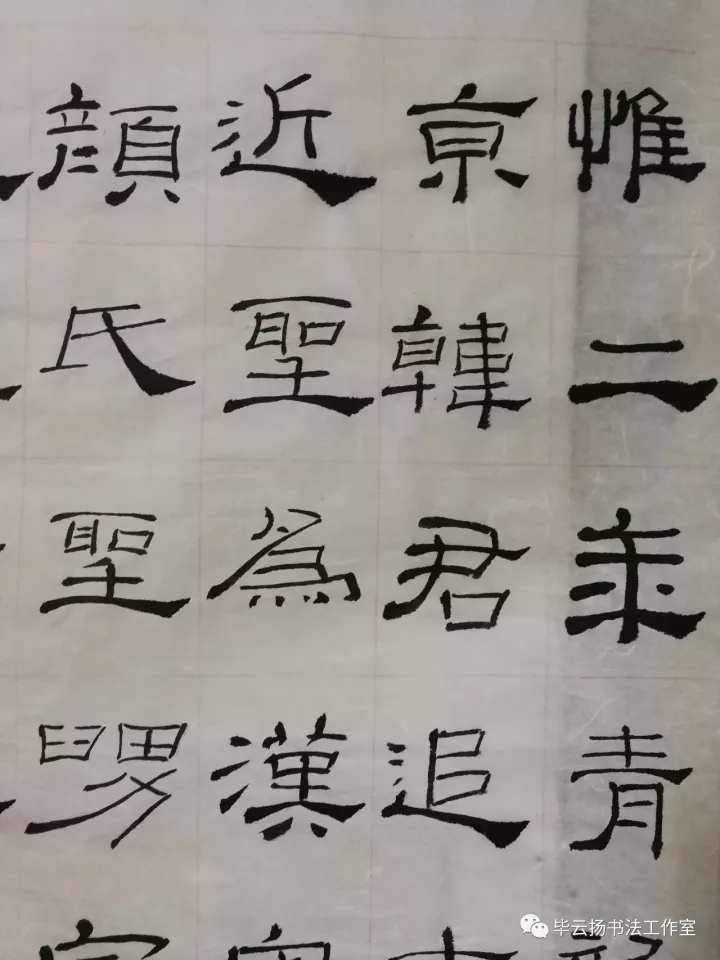 惟二年青
京韓君追
近聖為漢
顏氏聖舅
毕云扬书法工作室